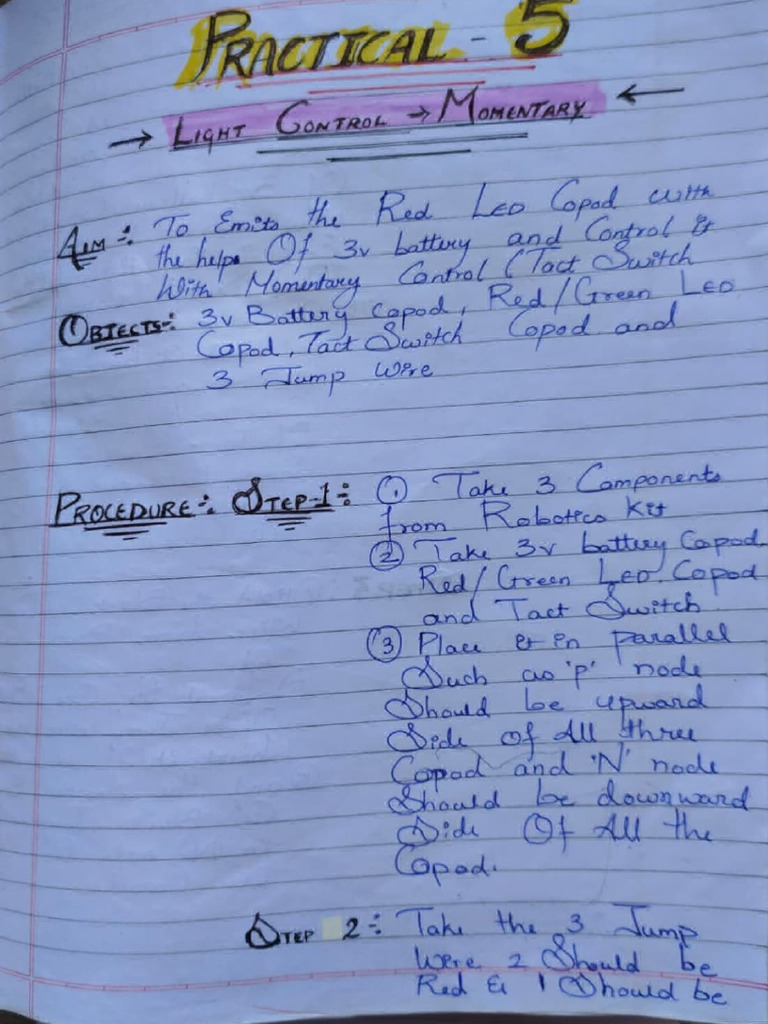 PRACTICAL - 5
→ LIGHT CONTROL → MOMENTARY ←
AIM :- To Emits the Red LED Copad with
the help Of 3v battery and Control it
With Momentary Control (Tact Switch
OBJECTS:- 3v Battery copad, Red/Green LED
Copad, Tact Switch Copad and
3 Jump Wire
PROCEDURE:- STEP-1:- ① Take 3 Components
from Robotics Kit
② Take 3v battery Copad,
Red/Green LED Copad
and Tact Switch
③ Place it in parallel
Such as 'p' node
Should be upward
Side of All three
Copad and 'N' node
Should be downward
Side Of All the
Copad.
STEP 2:- Take the 3 Jump
Wire 2 Should be
Red & 1 Should be